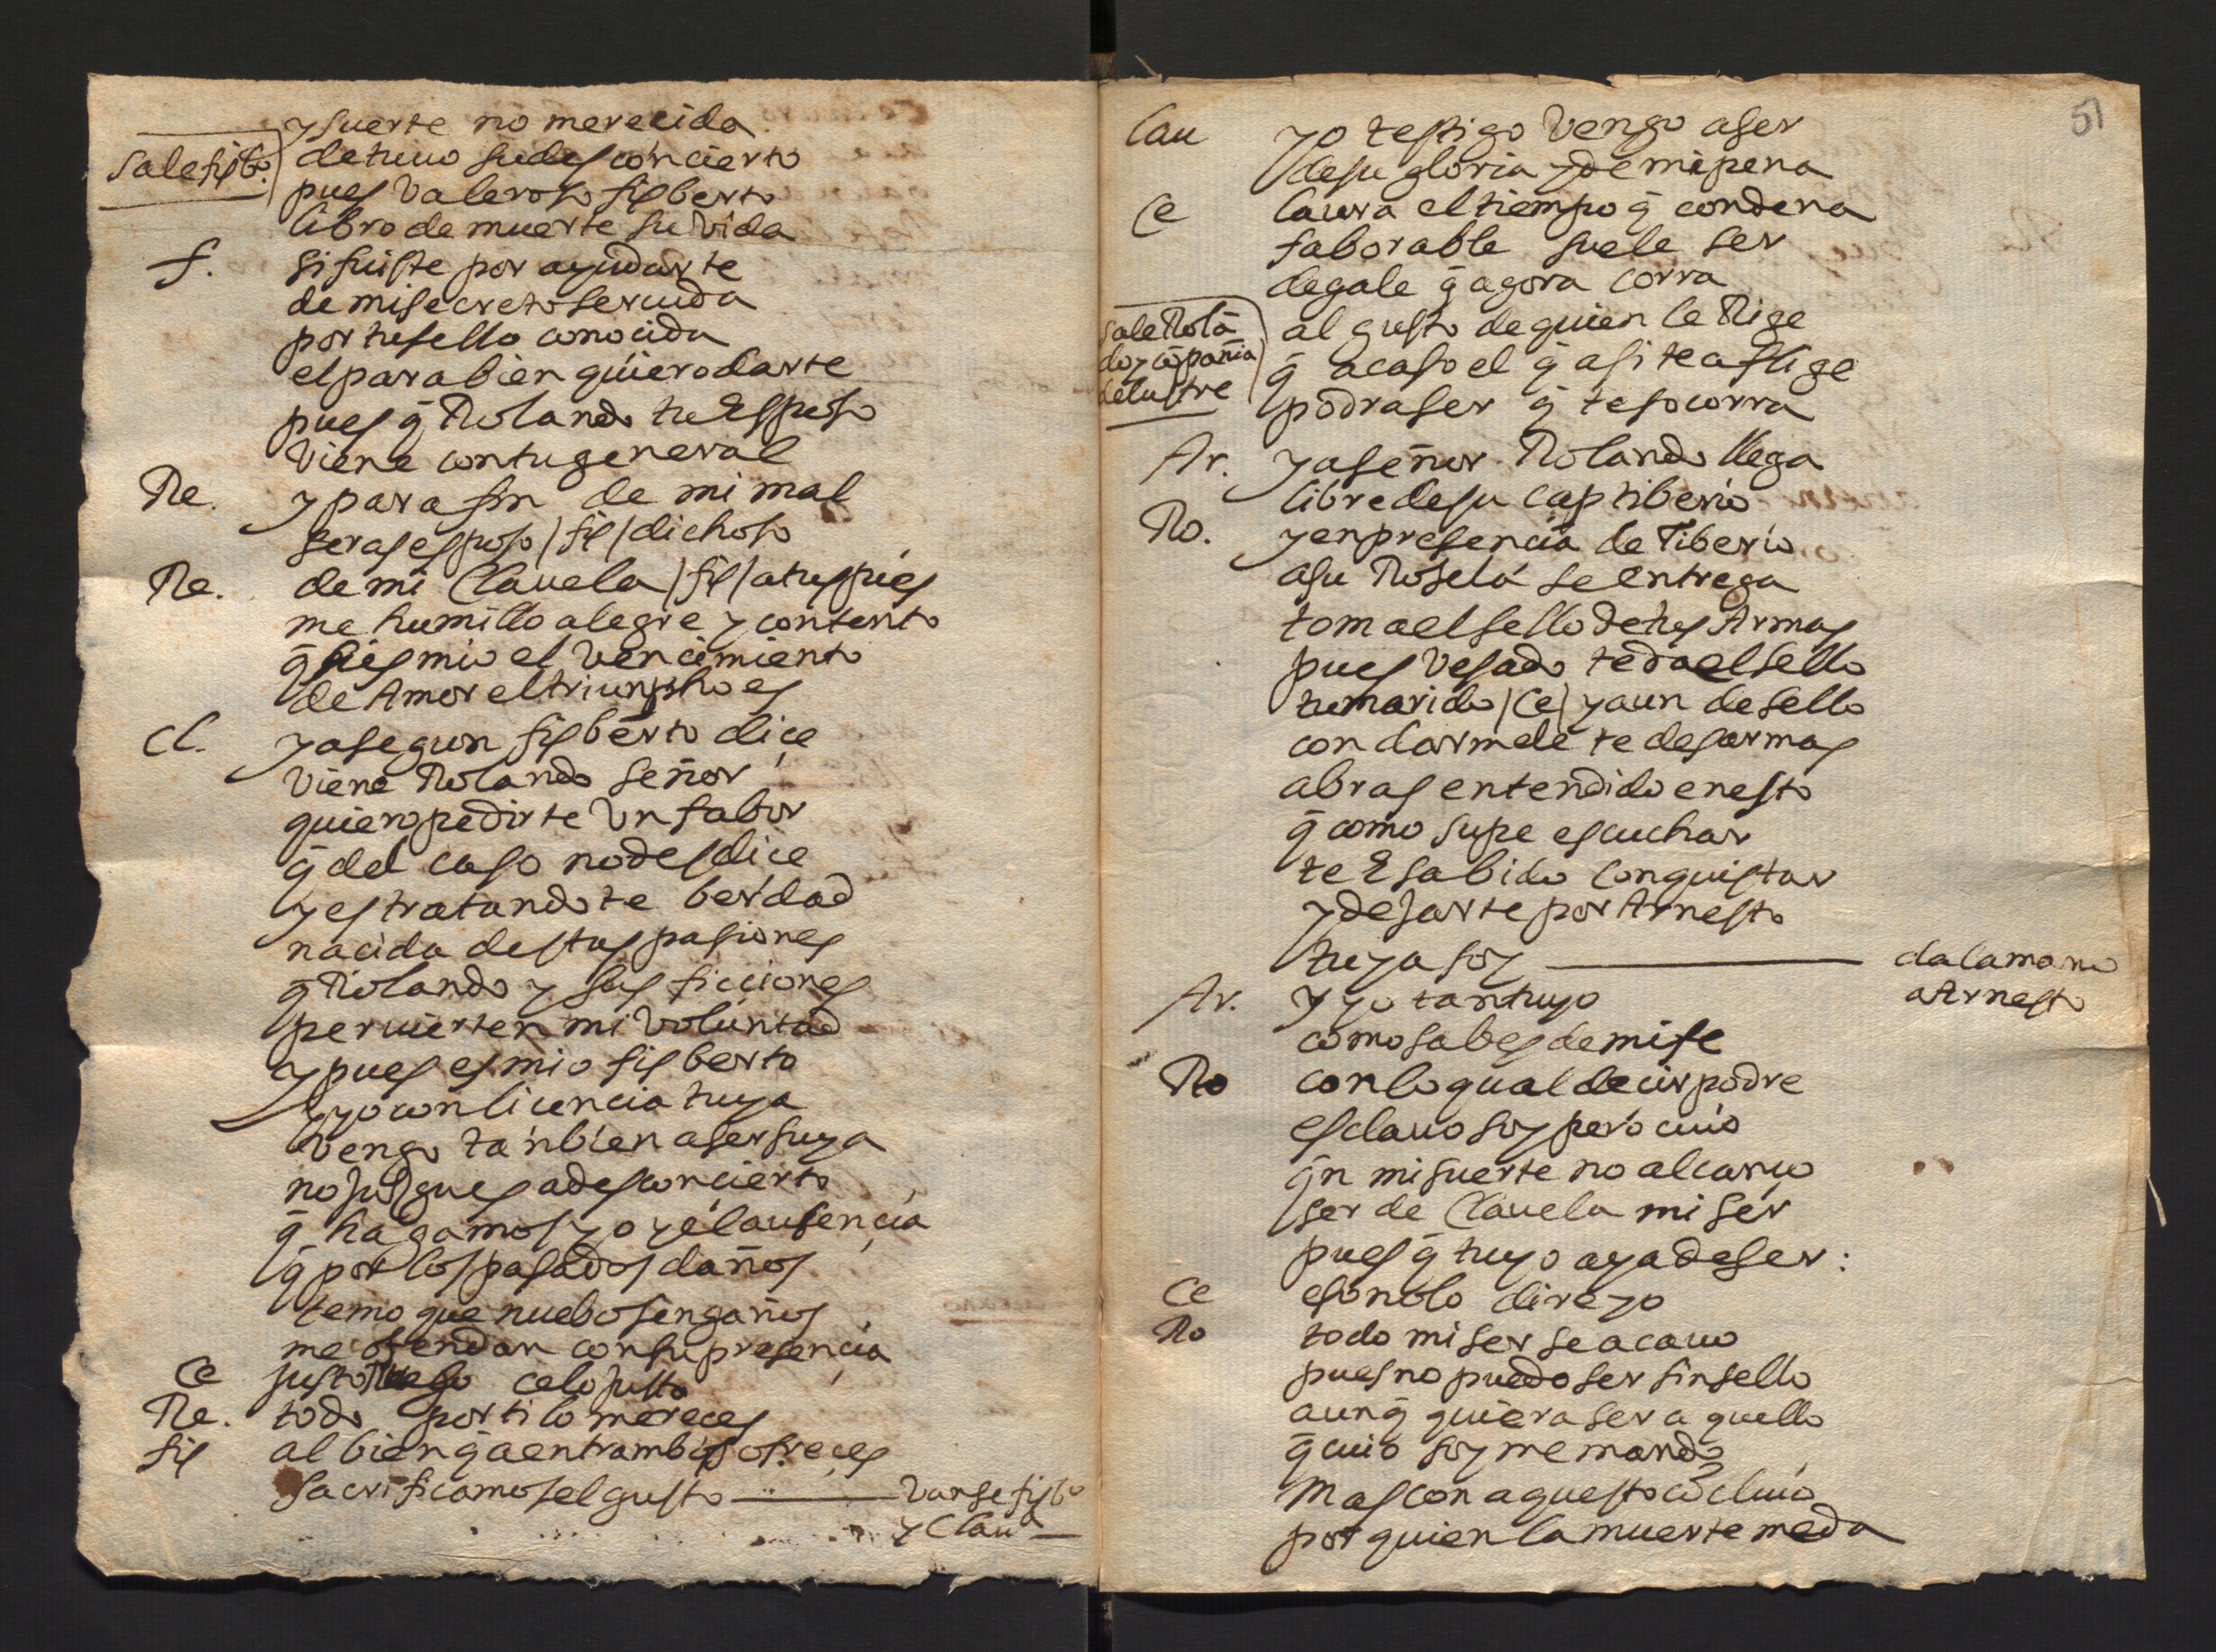 y suerte no merecida
sale fisb.o
detuuo su desconcierto
pues valeroso fisberto
libro de muerte su vida
f. si fuiste por ayudarte
de mi secreto seruida
por tu sello conocida
el parabien quiero darte
pues q̄ Rolando tu Esposo
viene con tu general
Re. y para fin de mi mal
seras esposo / fis / dichoso
Re. de mi Clauela / fis / a tus pies
me humillo alegre y contento
q̄ si es mio el vencimiento
de Amor el triunpho es
Cl. ya segun fisberto dice
viene Rolando señor
quiero pedirte vn fabor
q̄ del caso no desdice
y es tratandote berdad
nacida destas pasiones
q̄ Rolando y sus ficciones
peruierten mi voluntad
y pues es mio fisberto
y yo con licencia tuya
vengo tanbien a ser suya
no jusgues a desconcierto
q̄ hagamos yo y el ausençia
q̄ por los pasados daños
temo que nuebos engaños
me ofendan con su presençia
Ce justo Ruego celo justo
Re. todo por ti lo mereces
fis al bien q̄ a entrambos ofreçes
sacrificamos el gusto — vanse fisb.o
y Clau.a —
51
Lau yo testigo vengo a ser
de su gloria y de mi pena
Ce Laura el tiempo q̄ condena
faborable suele ser
degale q̄ agora corra
sale Rolā
do y cōpañia
de lustre
al gusto de quien le Rige
q̄ acaso el q̄ asi te aflige
podra ser q̄ te socorra
Ar. ya señor Rolando llega
libre de su captiberio
Ro. y en presencia de Tiberio
a su Rosela se entrega
toma el sello de tus Armas
pues vesado te da el sello
tu marido / Ce / y aun de sello
con darmele te desarmas
abras entendido en esto
q̄ como supe escuchar
te E sabido conquistar
y dejarte por Arnesto
tuya soy — da la mano
a Arnesto
Ar. y yo tan tuyo
como sabes de mi fe
Ro con lo qual decir podre
esclauo soy pero cuio
q̄n mi suerte no alcanço
ser de Clauela mi ser
pues q̄ tuyo aya de ser :
Ce eso no lo dire yo
Ro todo mi ser se acauo
pues no puedo ser sin sello
aunq̄ quiera ser aquello
q̄ cuio soy me mando
Mas con aquesto cōcluio
por quien la muerte me da